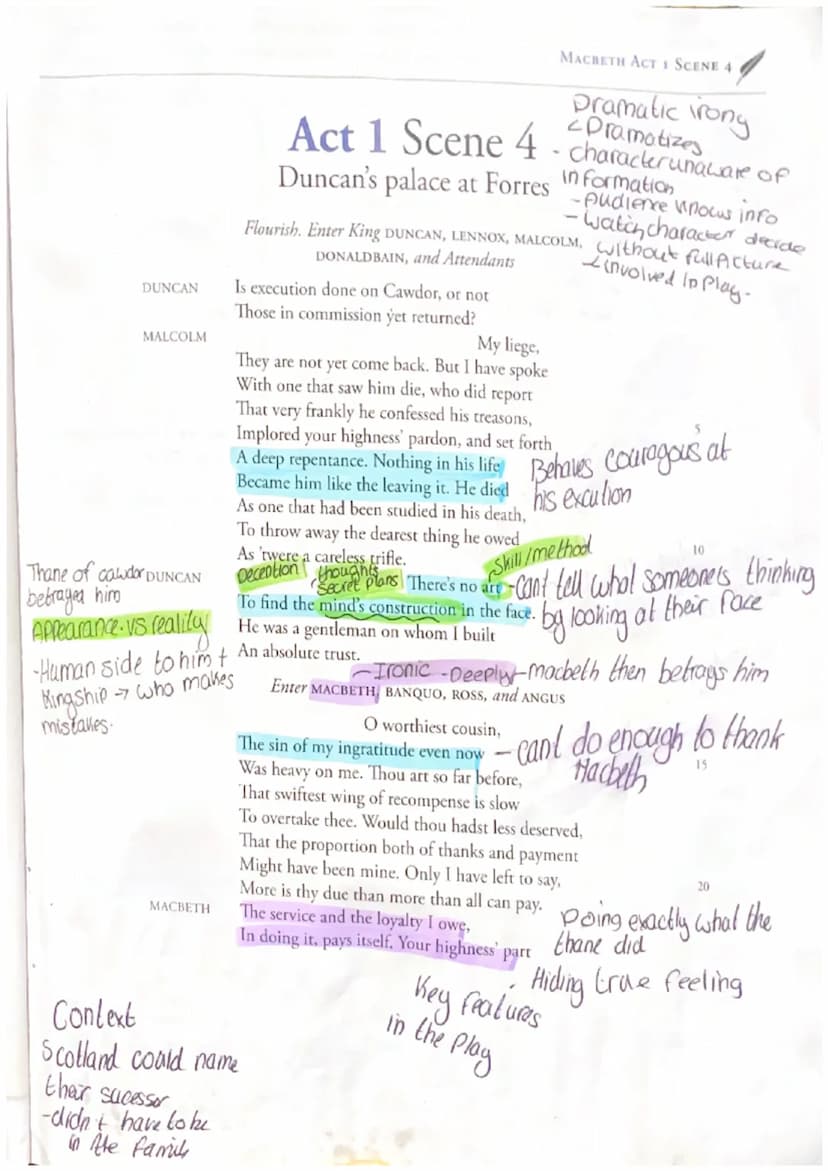 MACBETH ACT 1 SCENE 4
Dramatic irony
<Dramatizes
- character unaware of
information
- Audience knows info
- watch character decide
without full picture
<involved in play.
Act 1 Scene 4
Duncan's palace at Forres
Flourish. Enter King DUNCAN, LENNOX, MALCOLM,
DONALDBAIN, and Attendants
DUNCAN Is execution done on Cawdor, or not
Those in commission yet returned?
MALCOLM My liege,
They are not yet come back. But I have spoke
With one that saw him die, who did report
That very frankly he confessed his treasons,
5
Implored your highness' pardon, and set forth
A deep repentance. Nothing in his life
Became him like the leaving it. He died
Behaves couragous at
his excution
As one that had been studied in his death,
To throw away the dearest thing he owed
As 'twere a careless trifle.
10
Skill/method
Deception
thoughts
secret plans
DUNCAN There's no art
To find the mind's construction in the face.
- cant tell what someone is thinking
by looking at their face
He was a gentleman on whom I built
An absolute trust.
Thane of cawdor
betrayed him
Appearance vs reality
- Human side to him +
Kingship → who makes
mistakes.
- Ironic - Deeply - macbeth then betrays him
Enter MACBETH, BANQUO, ROSS, and ANGUS
O worthiest cousin,
The sin of my ingratitude even now
- cant do enough to thank
Macbeth
15
Was heavy on me. Thou art so far before,
That swiftest wing of recompense is slow
To overtake thee. Would thou hadst less deserved,
That the proportion both of thanks and payment
Might have been mine. Only I have left to say,
20
More is thy due than more than all can pay.
MACBETH The service and the loyalty I owe,
In doing it, pays itself. Your highness' part
Doing exactly what the
thane did
Hiding true feeling
Key features
in the play
Context
Scotland could name
their sucessor
- didnt have to be
in the family